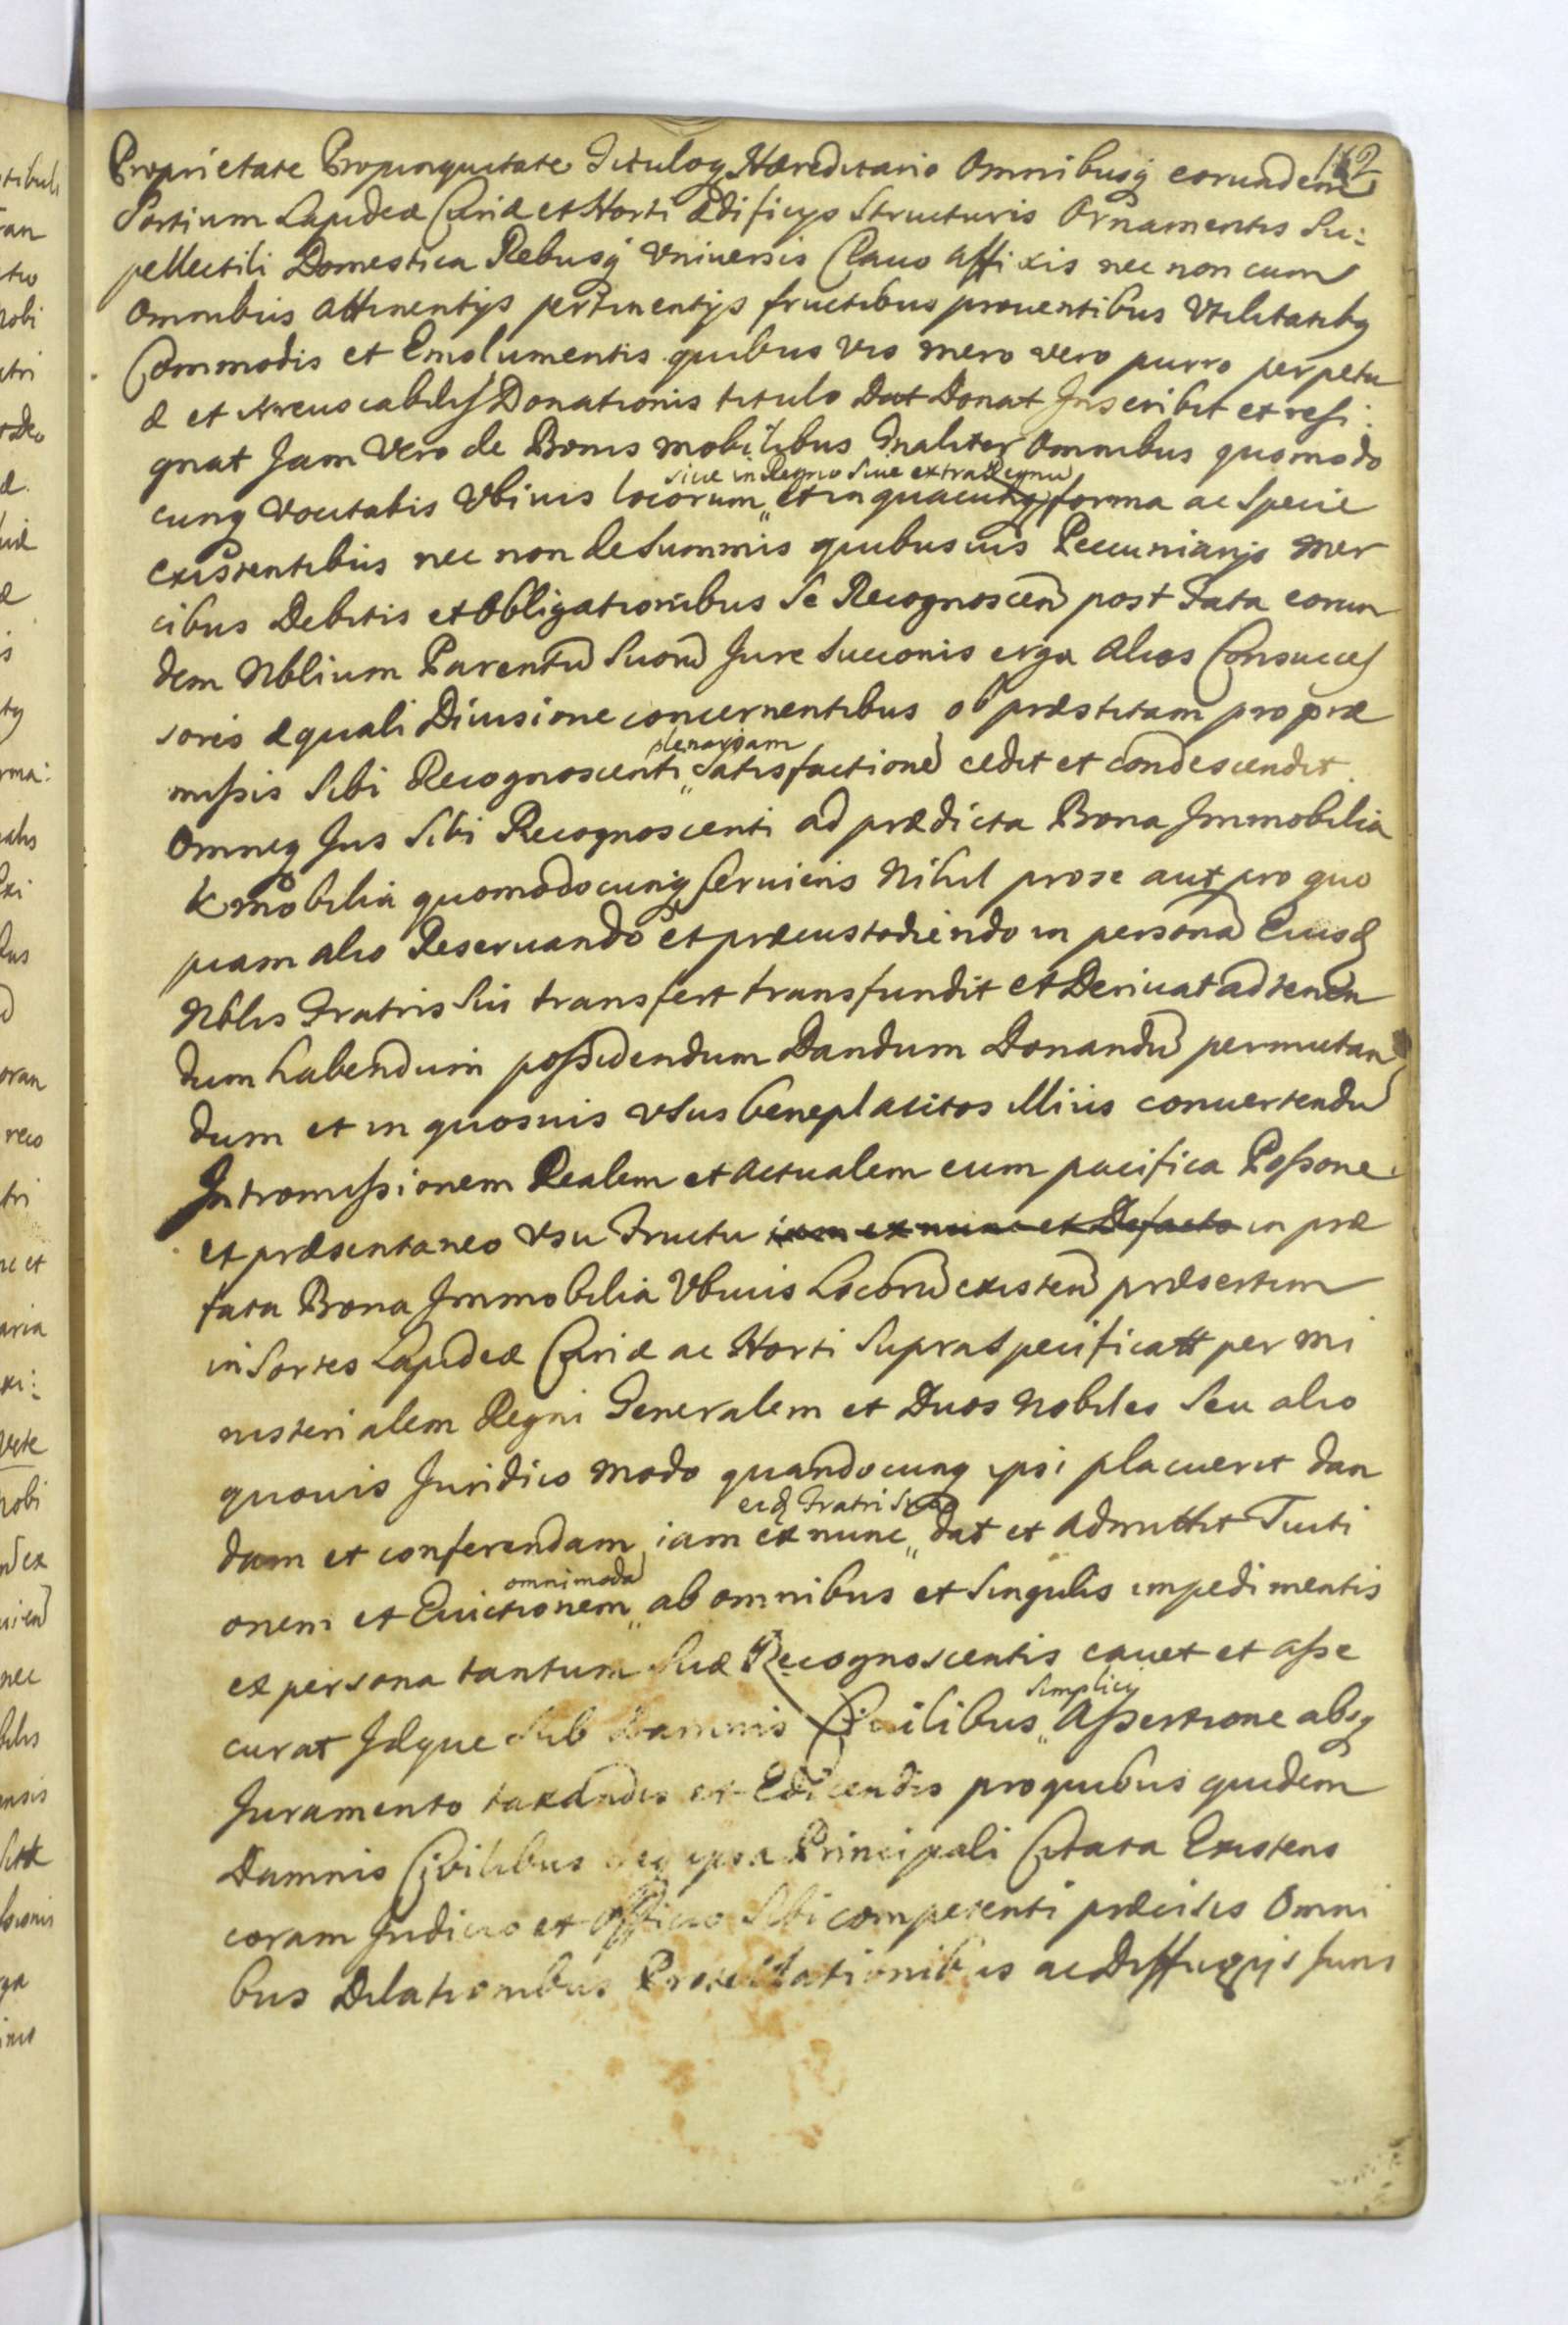 162
Proprietate Propinquitate Tituloq Hæreditario Omnibusq eorundem
Sortium Lapideæ Curiæ et Horti Ædificijs Structuris Ornamentis Su:
pellectili Domestica Rebusq Vniuersis Clauo affixis nec non cum
Omnibus attinentijs pertinentijs fructibus prouentibus Vtilitatibq
Commodis et Emolumentis quibusuis mero vero purro perpetu
æ et irreuocabilis Donationis titulo Dat Donat Inscribit et resi:
gnat Jam Vero de Bonis mobilibus Gnaliter Omnibus quomodo
siue in Regno Siue extra Regnu
cunq vocitatis Vbiuis locorum et in quacunq forma ac Specie
existentibus nec non de Summis quibusuis Pecuniarijs mer
cibus Debitis et Obligationibus Se Recognoscen post Fata eorun
dem Nblium Parentu Suoru Jure Succonis erga alios Consucces
soris æquali Diuisione concernentibus ob præstitam pro præ
plenariam
missis Sibi Recognoscenti satisfactione cedit et condescendit.
Omneq Jus Sibi Recognoscenti ad prædicta Bona Immobilia
& mobilia quomodocunq seruiens Nihil pro se aut pro quo
piam alio Reseruando et præcustodiendo in persona Eiusd
Nblis Fratris Sui transfert transfundit et Deriuat ad tenen
dum habendum possidendum Dandum Donandu permutan
dum et in quosuis vsus beneplacitos Illius conuertendu
Intromissionem Realem et Actualem cum pacifica Possone
et præsentaneo vsu Fructu iam ex nunc et Defacto in præ
fata Bona Immobilia Vbiuis Locoru existen præsertim
in Sortes Lapideæ Curiæ ac Horti Supraspecificatt per mi
nisterialem Regni Generalem et Duos nobiles Seu alio
quouis Juridico modo quandocunq ipsi placuerit dan
eid Fratri Suo
dam et conferendam iam ex nunc dat et admittit Tuiti
omnimoda
onem et Euictionem ab omnibus et Singulis impedimentis
ex persona tantum Suæ Recognoscentis cauet et asse
simplicij
curat Idque Sub Damnis Ciuilibus Assertione absq
Juramento taxandis et Edicendis pro quibus quidem
Damnis Civilibus ipsa Principali Citata Existens
coram Judicio et Officio Sibi competenti præcisis Omni
bus Dilationibus ac Diffugijs Juris